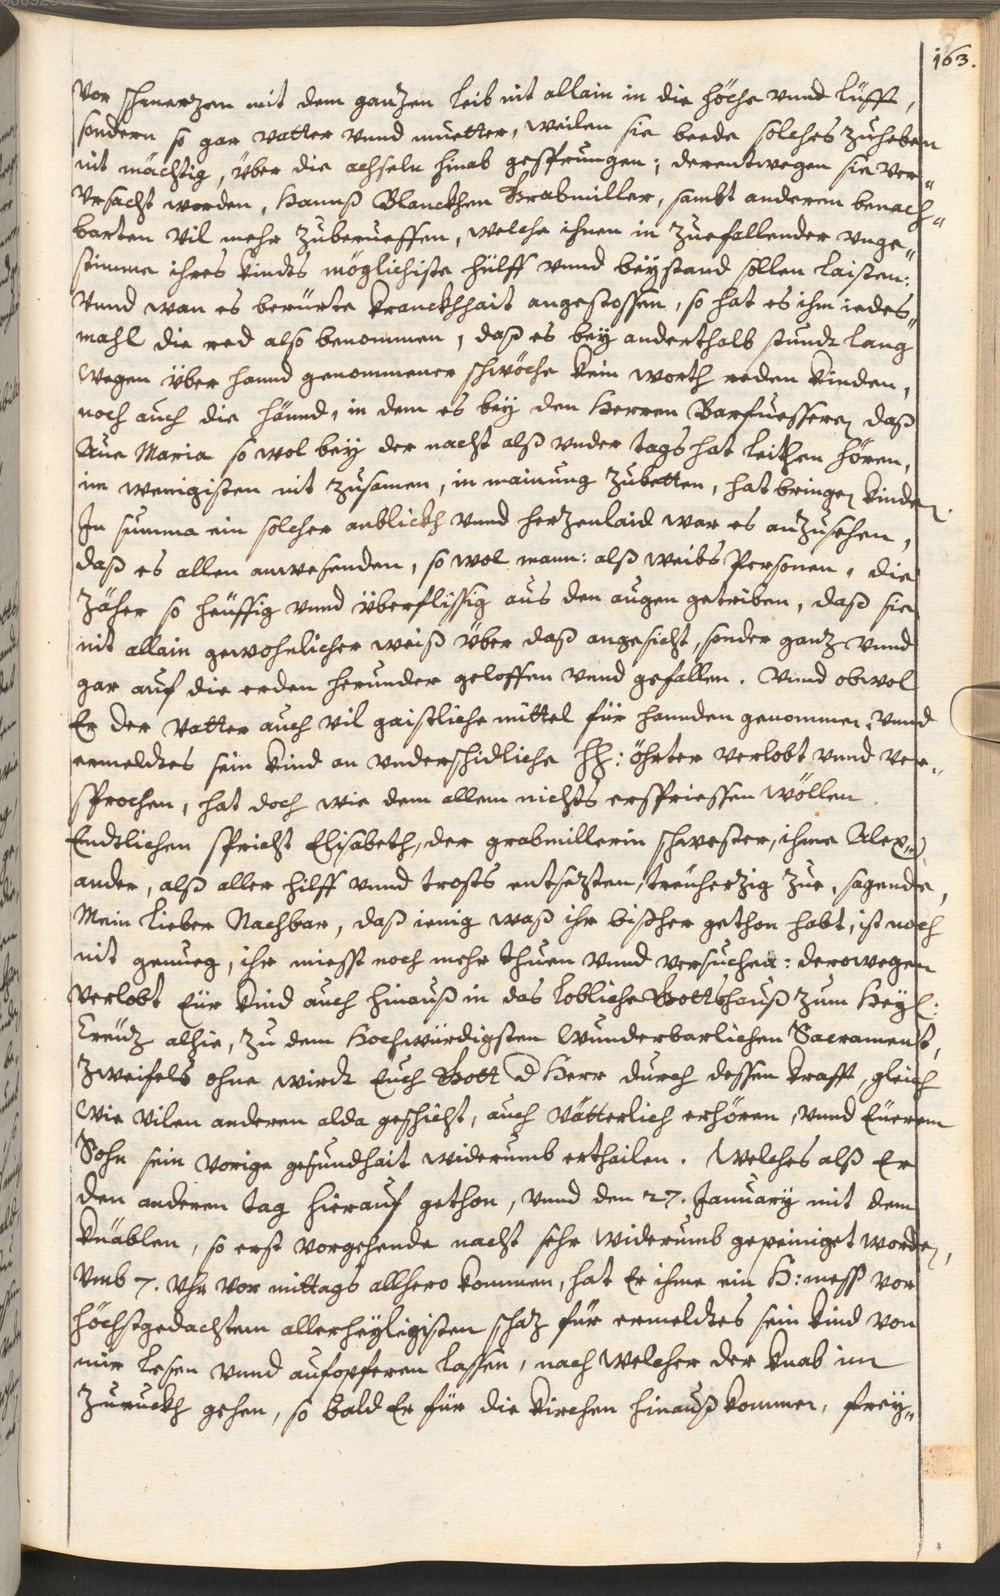 163.
vor schmerzen mit dem ganzen leib nit allain in die höche vnnd lüfft,
sondern so gar vatter vnnd muetter, weilen sie beede solches zuheben
nit mächtig, über die achseln hinab gesprungen; derentwegen sie ver¬
vrsacht worden, Hannß Blanckhen Grabmiller, sambt anderen benach¬
barten vil mehr zuberueffen, welche ihnen in zuefallender vnge¬
stimme ihres kindts möglichiste hülff vnnd beÿstand sollen laisten:
Vnnd wan es berürte kranckhhait angestossen, so hat es ihm iedes¬
mahl die red also benommen, daß es beÿ anderthalb stundt lang
wegen über hannd genommener schwöche kein worth reden kinden,
noch auch die hännd, in dem es beÿ den Herren Barfuesseren daß
Aue Maria so wol beÿ der nacht alß vnder tags hat leithen hören,
im wenigisten nit zusamen, in mainung zubetten, hat bringen kinden.
In summa ein solcher anblickh vnnd hertzenlaid war es anzusehen,
daß es allen anwesenden, so wol mann: alß weibs Personen, die
zäher so heüffig vnnd überflissig aus den augen getriben, daß sie
nit allain gewohnlicher weiß über daß angesicht, sonder gantz vnnd
gar auf die erden herunder geloffen vnnd gefallen. Vnnd obwol
Er der vatter auch vil gaistliche mittel für hannden genommen, vnnd
ermeldtes sein kind an vnderschidliche HH: öhrter verlobt vnnd ver¬
sprochen, hat doch wie dem allem nichts erspriessen wöllen.
Endtlichen spricht Elisabeth, der grabmillerin schwester, ihme Alex¬
ander, alß aller hilff vnnd trosts entsetzten, treüherzig zue, sagende,
Mein lieber Nachbar, daß ienig waß ihr bißher gethon habt, ist noch
nit genueg, ihr miesst noch mehr thuen vnnd versuchen: derowegen
verlobt Eür kind auch hinauß in das lobliche Gottshauß zum Heÿl:
Creütz alhie, zu dem Hochwürdigsten Wunderbarlichen Sacrament,
zweifels ohne wirdt Euch Gott d Herr durch dessen krafft, gleich
wie vilen anderen alda geschicht, auch vätterlich erhören, vnnd Eüerem
Sohn sein vorige gesundhait widerumb erthailen. Welches alß Er
den anderen tag hierauf gethon, vnnd den 27. Januarÿ mit dem
knäblen, so erst vorgehende nacht sehr widerumb gepeiniget worden,
vmb 7. vhr vor mittags allhero kommen, hat Er ihme ein H: mess vor
höchstgedachtem allerheÿligisten schatz für ermeldtes sein kind von
mir lesen vnnd aufopferen lassen, nach welcher der knab im
zuruckh gehen, so bald Er für die kirchen hinauß kommen, freÿ¬